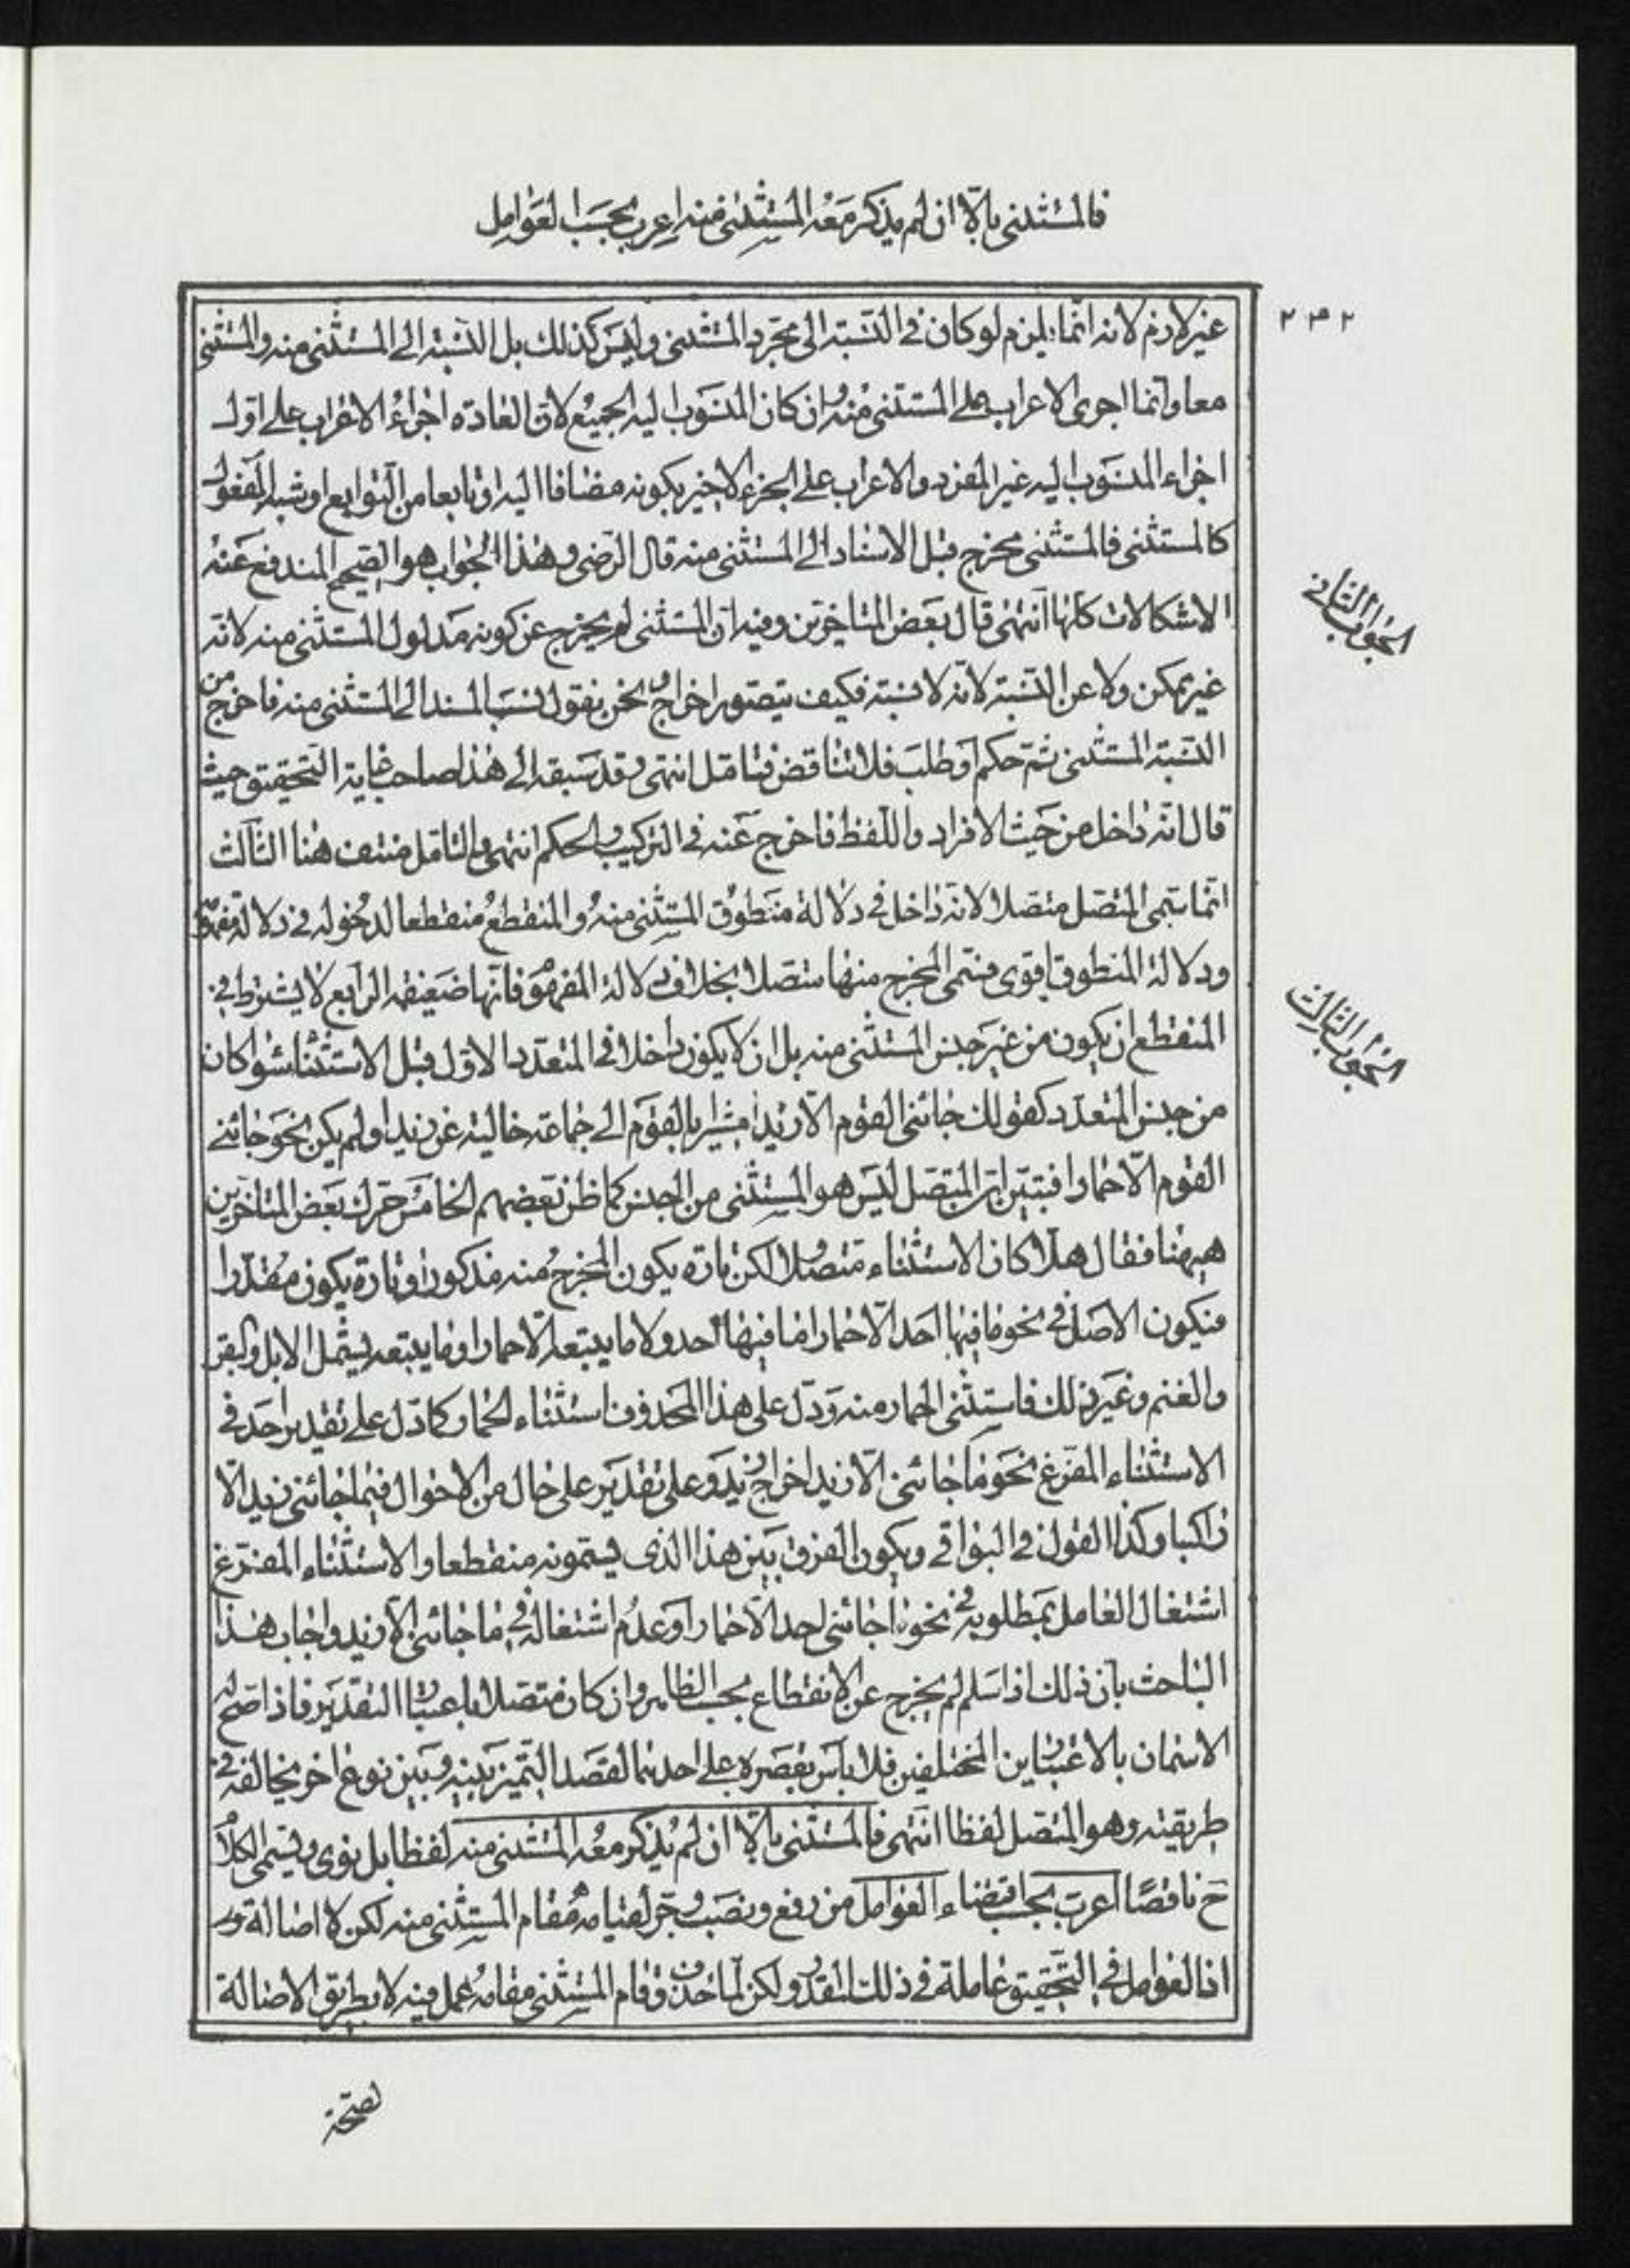 فالمستثنى بالّا ان لم يذكر معه المستثنى منه اعرب بحسب العوامل
٢٣٢
غير لازم لانه انّما يلزم لو كان في النّسبة الى مجرّد المستثنى وليس كذلك بل النّسبة الى المستثنى منه والمستثنى
معا وانّما اجرى الاعراب على المستثنى منه وان كان المنسوب اليه الجميع لانّ العادة اجراء الاعراب على اوّل
اجزاء المنسوب اليه غير المفرد والاعراب على الجزء الاخير بكونه مضافا اليه او تابعا من التوابع او شبه المفعول
كالمستثنى فالمستثنى مخرج قبل الاسناد الى المستثنى منه قال الرّضى وهذا الجواب هو الصّحيح المندفع عنه
الاشكالات كلها انتهى قال بعض المتاخرين وفيه انّ المستثنى لم يخرج عن كونه مدلول المستثنى منه لانّه
غير ممكن ولا عن النّسبة لانّه لا نسبة فكيف يتصور اخراج ونحن نقول نسب المسند الى المستثنى منه فاخرج من
النّسبة المستثنى ثمّ حكم او طلب فلا تناقض فتامّل انتهى وقد سبقه الى هذا صاحب غاية التحقيق حيث
قال انّه داخل من حيث الافراد واللّفظ فاخرج عنه في التركيب والحكم انتهى والتامّل منتف هنا الثّالث
انّما سمّى المتصل متصلا لانّه داخل في دلالة منطوق المستثنى منه والمنقطع منقطعا لدخوله في دلالة مفهومه
ودلالة المنطوق اقوى فسمّى المخرج منها متصلا بخلاف دلالة المفهوم فانّها ضعيفة الرّابع لا يشترط في
المنقطع ان يكون من غير جنس المستثنى منه بل ان لا يكون داخلا في المتعدّد الاول قبل الاستثناء سواء كان
من جنس المتعدّد كقولك جائني القوم الّا زيدا مشيرا بالقوم الى جماعة خالية عن زيد او لم يكن نحو جائني
القوم الّا حمارا فتبيّن انّ المتّصل ليس هو المستثنى من الجنس كما ظنّ بعضهم الخامس حرّك بعض المتاخرين
هيهنا فقال هلّا كان الاستثناء متّصلا لكن تارة يكون المخرج منه مذكورا وتارة يكون مقدّرا
فيكون الاصل في نحو ما فيها احد الّا حمارا ما فيها احد ولا ما يتبعه الّا حمارا وما يتبعه يشمل الابل والبقر
والغنم وغير ذلك فاستثنى الحمار منه ودلّ على هذا المحذوف استثناء الحمار كما دلّ على تقدير احد في
الاستثناء المفرّغ نحو ما جائني الّا زيد اخراج زيد وعلى تقدير على حال من الاحوال فيما جائني زيد الّا
راكبا وكذا القول في البواقي ويكون الفرق بين هذا الذى يسمّونه منقطعا والاستثناء المفرّغ
اشتغال العامل بمطلوبه في نحو ما جائني احد الّا حمارا وعدم اشتغاله في ما جائني الّا زيد واجاب هذا
الباحث بانّ ذلك اذا سلم لم يخرج عن الانقطاع بحسب الظاهر وان كان متصلا باعتبار التقدير فاذا صحّ له
الاسمان بالاعتبارين المختلفين فلا باس بقصره على احدهما لقصد التّميز بينه وبين نوع اخر يخالفه في
طريقته وهو المتصل لفظا انتهى فالمستثنى بالّا ان لم يذكر معه المستثنى منه لفظا بل نوى ويسمّى الكلام
ح ناقصًا اعرب بحسب اقتضاء العوامل من رفع ونصب وجرّ لقيامه مقام المستثنى منه لكن لا اصالة
اذ العوامل في التحقيق عاملة في ذلك المقدّر ولكن لمّا حذف وقام المستثنى مقامه عمل فيه لا بطريق الاصالة
الجواب الثاني
الجواب الثالث
لصحّة